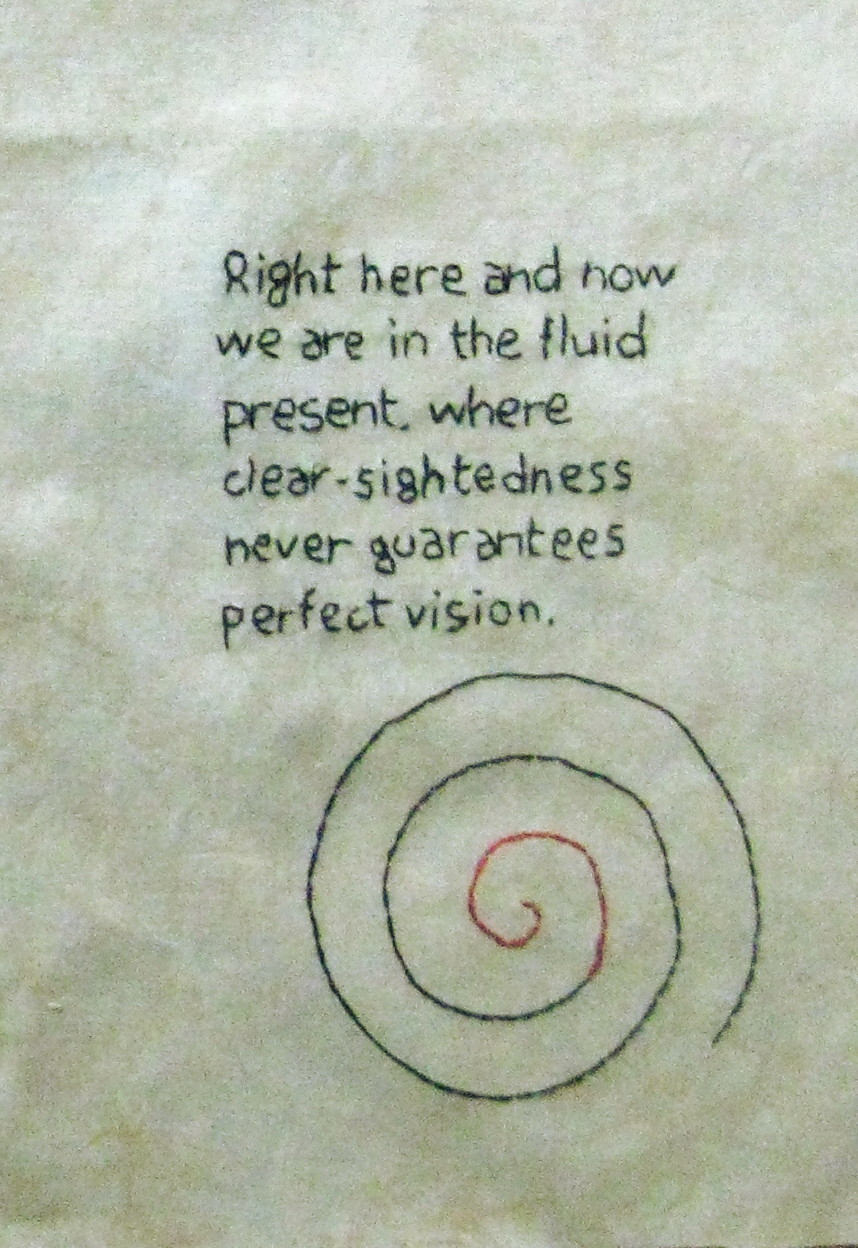 Right here and now
we are in the fluid
present, where
clear-sightedness
never guarantees
perfect vision.